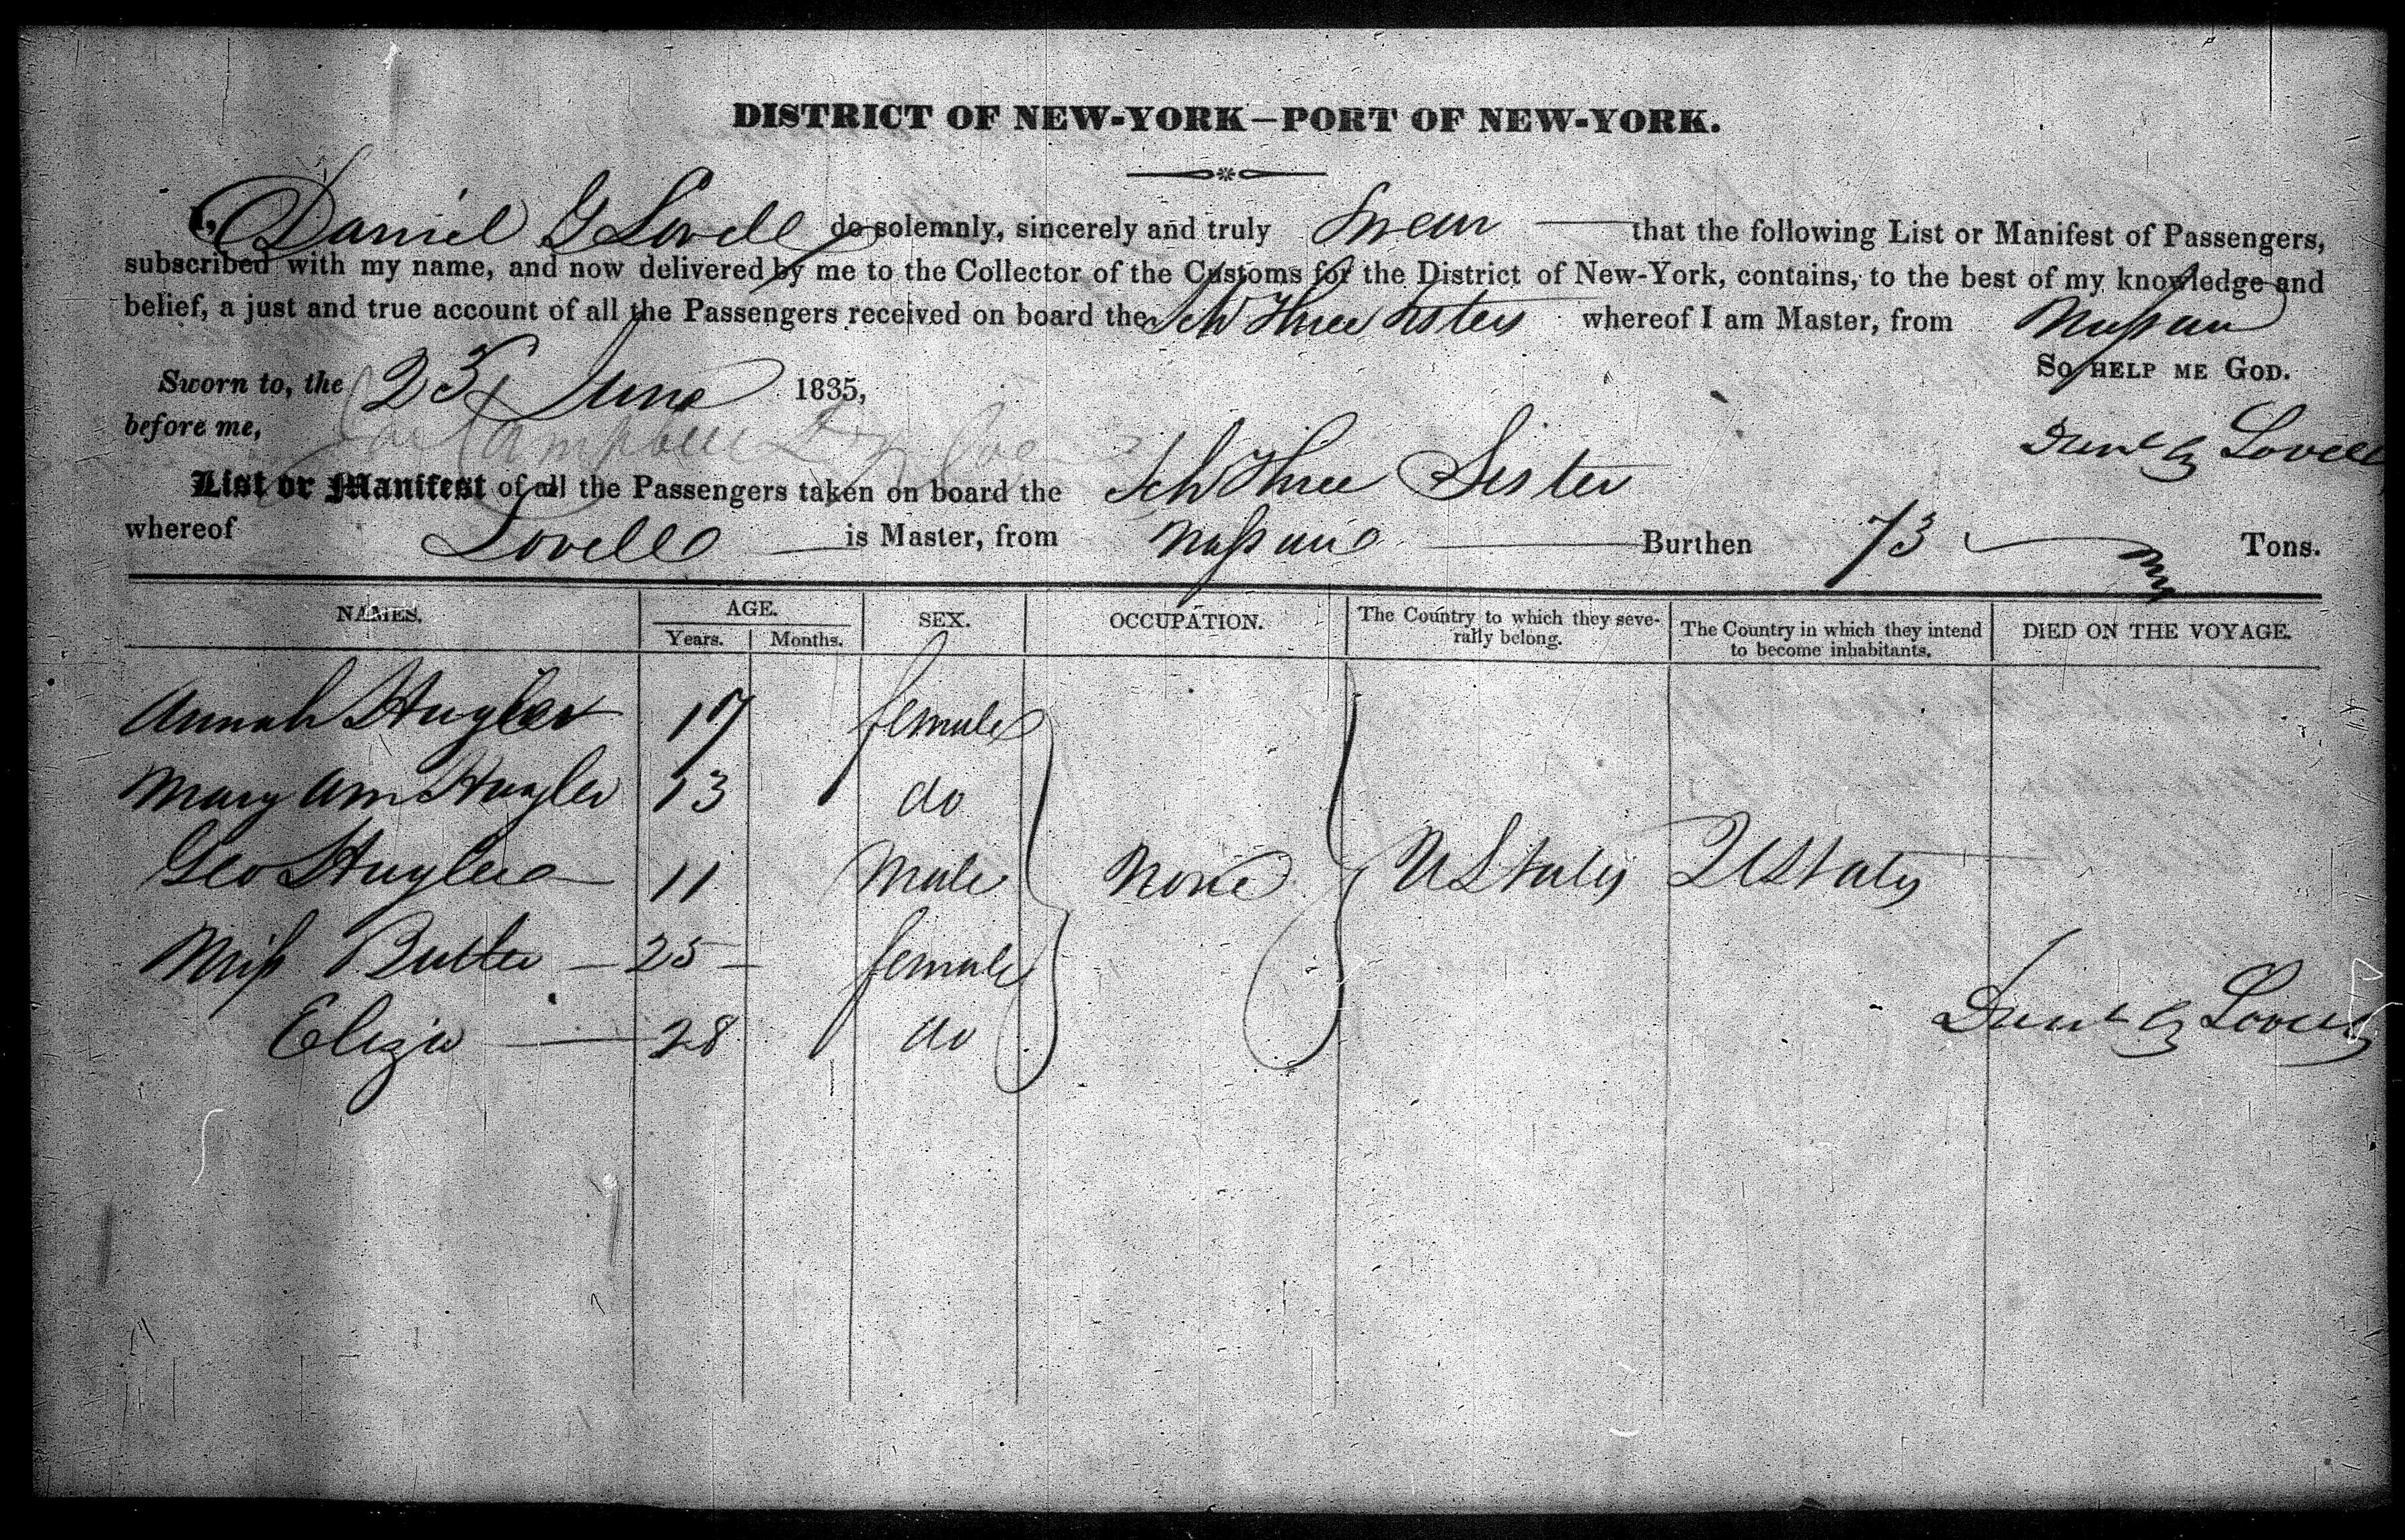 DISTRICT OF NEW-YORK—PORT OF NEW-YORK.
I, Daniel G Lovell do solemnly, sincerely and truly Swear that the following List or Manifest of Passengers,
subscribed with my name, and now delivered by me to the Collector of the Customs for the District of New-York, contains, to the best of my knowledge and
belief, a just and true account of all the Passengers received on board the Sch Three Sisters whereof I am Master, from Nassau
So HELP ME GOD.
Sworn to, the 23 June 1835,
before me,
Danl G Lovell
List or Manifest of all the Passengers taken on board the Sch Three Sister
whereof Lovell is Master, from Nassau Burthen 73 Tons.
NAMES. AGE. Years. Months. SEX. OCCUPATION. The Country to which they severally belong. The Country in which they intend to become inhabitants. DIED ON THE VOYAGE.
Annah Huyler 17 female
Mary Ann Huyler 13 do
Geo Huyler 11 Male None U States U States
Miss Butler 25 female
Eliza 28 do
Danl G Lovell